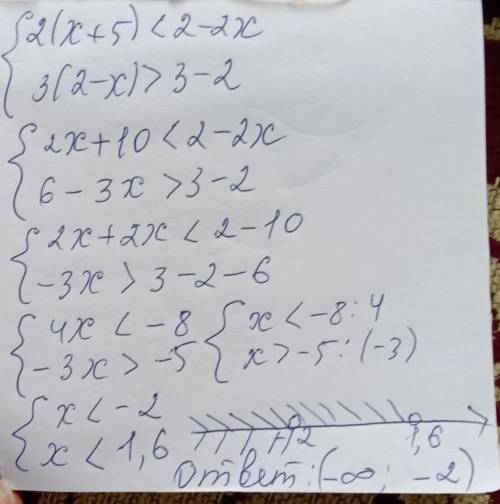 {2(x+5) < 2-2x
{3(2-x) > 3-2
{2x+10 < 2-2x
{6-3x > 3-2
{2x+2x < 2-10
{-3x > 3-2-6
{4x < -8 {x < -8:4
{-3x > -5 {x > -5:(-3)
{x < -2
{x < 1,6
-2 1,6
Ответ: (-∞; -2)